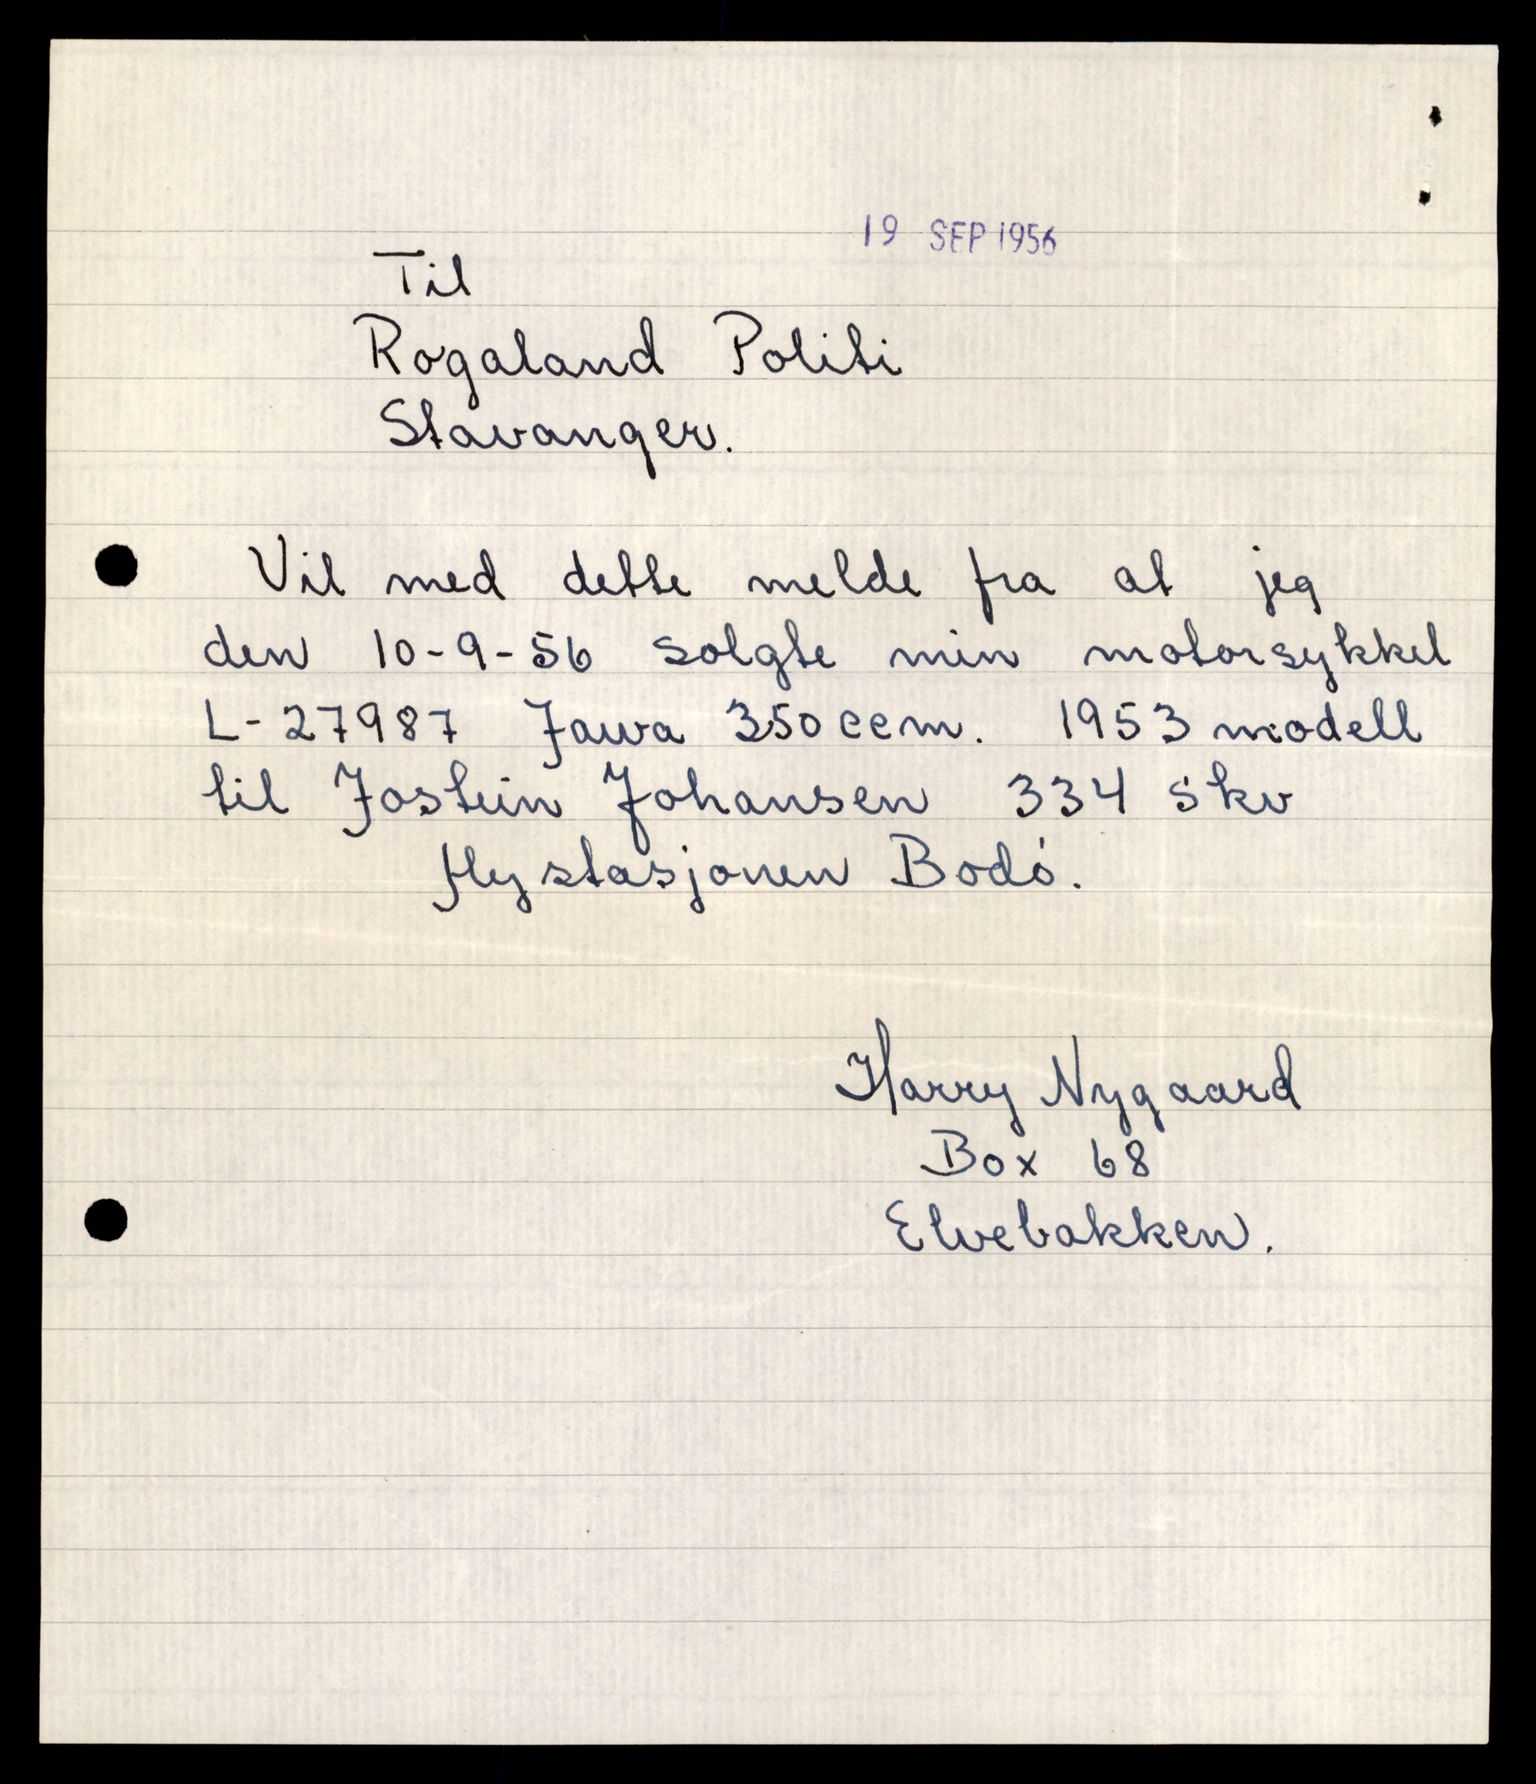 19 SEP 1956
Til
Rogaland Politi
Stavanger.
Vil med dette melde fra at jeg
den 10-9-56 solgte min motorsykkel
L-27987 Jawa 350 ccm. 1953 modell
til Jostein Johansen 334 skv
flystasjonen Bodó.
Harry Nygaard
Box 68
Elvebakken.